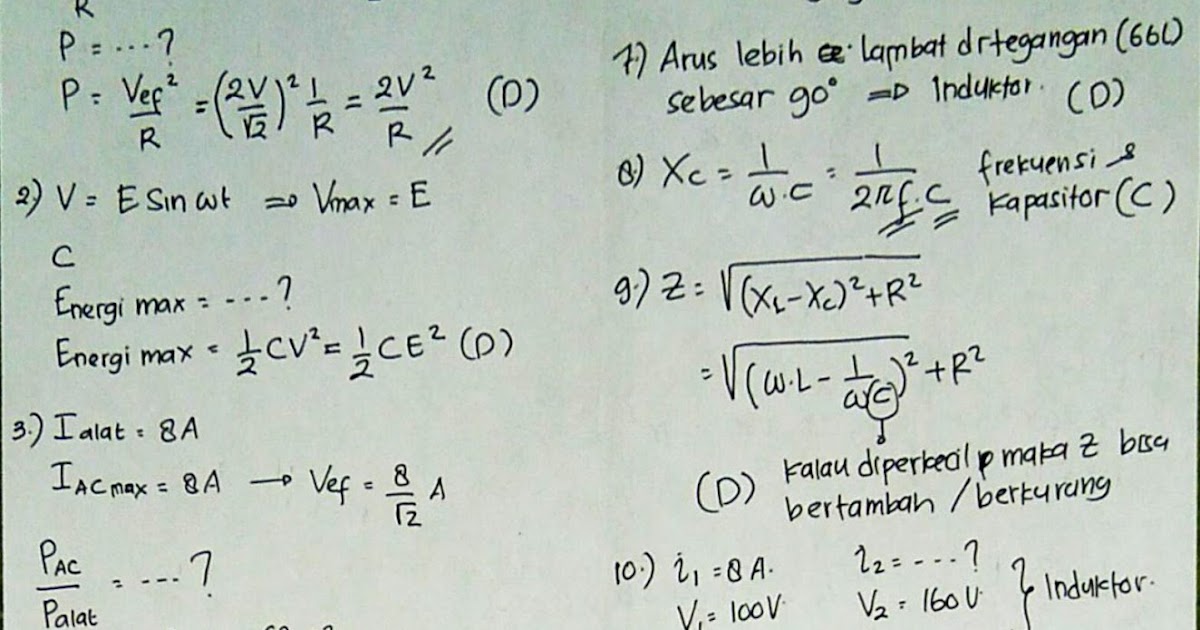 R
P = ...?
P = Vef²/R = (2V/√2)² 1/R = 2V²/R (D)
2) V = E Sin ωt => Vmax = E
C
Energi max = ---?
Energi max = 1/2 CV² = 1/2 CE² (D)
3.) I alat = 8A
I AC max = 8A → Vef = 8/√2 A
PAC/Palat = ---?
7.) Arus lebih lambat dr tegangan (66L)
sebesar 90° => Induktor. (D)
8.) Xc = 1/ω.C = 1/2πf.C frekuensi &
kapasitor (C)
9.) Z = √(XL-Xc)²+R²
= √(ω.L - 1/ωC)² + R²
(D) kalau diperkecil maka Z bisa
bertambah / berkurang
10.) i₁ = 8 A. i₂ = ---?
V₁ = 100V V₂ = 160V } Induktor.